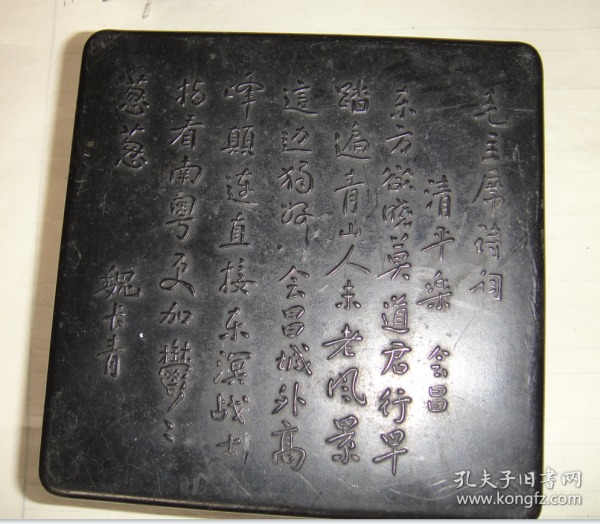 毛主席诗词
清平乐 会昌
东方欲晓莫道君行早
踏遍青山人未老风景
這边独好 会昌城外高
峰顛连直接东溟战士
指看南粤更加鬱〻
葱葱
魏长青
孔夫子旧书网
www.kongfz.com